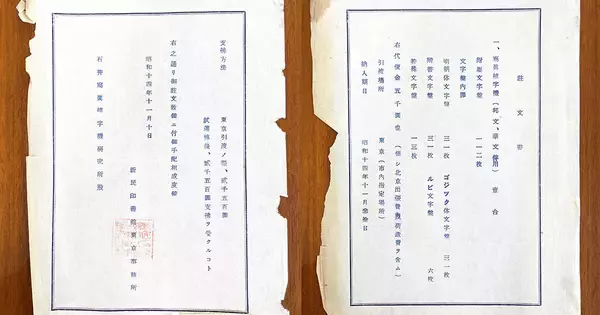 註文書
一、寫眞植字機(邦文、華文併用) 壹台
附屬文字盤 一一二枚
文字盤內譯
明朝体文字盤 三一枚 ゴジツク体文字盤 三一枚
楷書文字盤 三一枚 ルビ文字盤 六枚
文字盤 一三枚
右代價金五千圓也(但シ北京出張費及荷造費ヲ含ム)
引渡場所 東京(市內指定場所)
納入期日 昭和十四年十一月參拾日
支拂方法 東京引渡ノ際、貳千五百圓
試運轉後、貳千五百圓支拂ヲ受クルコト
右之通リ御註文致候ニ付御手配相成度候
昭和十四年十一月十日
新民印書館東京事務所
石井寫眞植字機硏究所殿